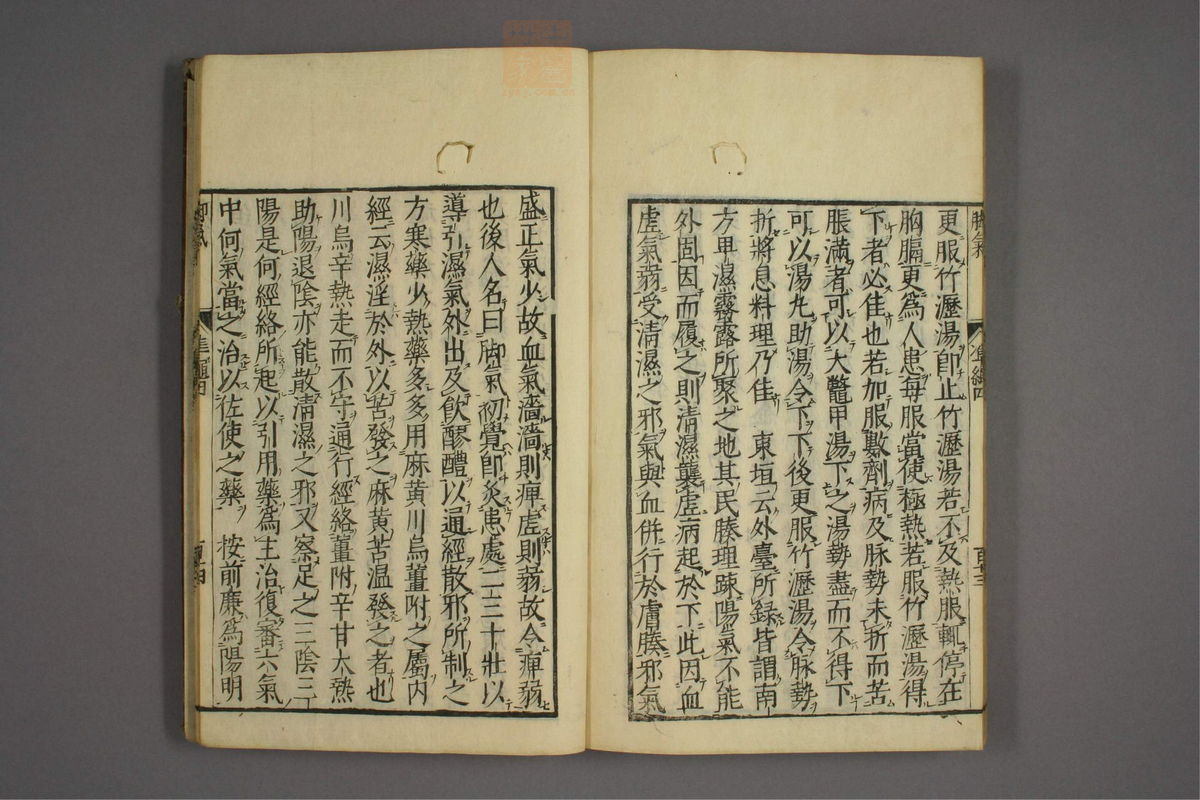 更服竹瀝湯卽止竹瀝湯若不及熱服輒停在
胸膈更爲人患每服當使極熱若服竹瀝湯得
下者必佳也若加服數劑病及脉勢未折而苦
脹滿者可以大鼈甲湯下之湯勢盡而不得下
可以湯丸助湯令下下後更服竹瀝湯令脉勢
折將息料理乃佳 東垣云外臺所録皆謂南
方卑濕霧露所聚之地其民腠理踈陽氣不能
外固因而履之則清濕襲虛病起於下此因血
虛氣弱受清濕之邪氣與血併行於膚腠邪氣
盛正氣少故血氣濇濇則痺虛則弱故令痺弱
也後人名曰脚氣初覺卽灸患處二三十壯以
導引濕氣外出及飲醪醴以通經散邪所制之
方寒藥少熱藥多多用麻黄川烏薑附之屬内
經云濕淫於外以苦發之麻黄苦温發之者也
川烏辛熱走而不守通行經絡薑附辛甘大熱
助陽退陰亦能散清濕之邪又察足之三陰三
陽是何經絡所起以引用藥爲主治復審六氣
中何氣當之治以佐使之藥 按前廉爲陽明
脚氣